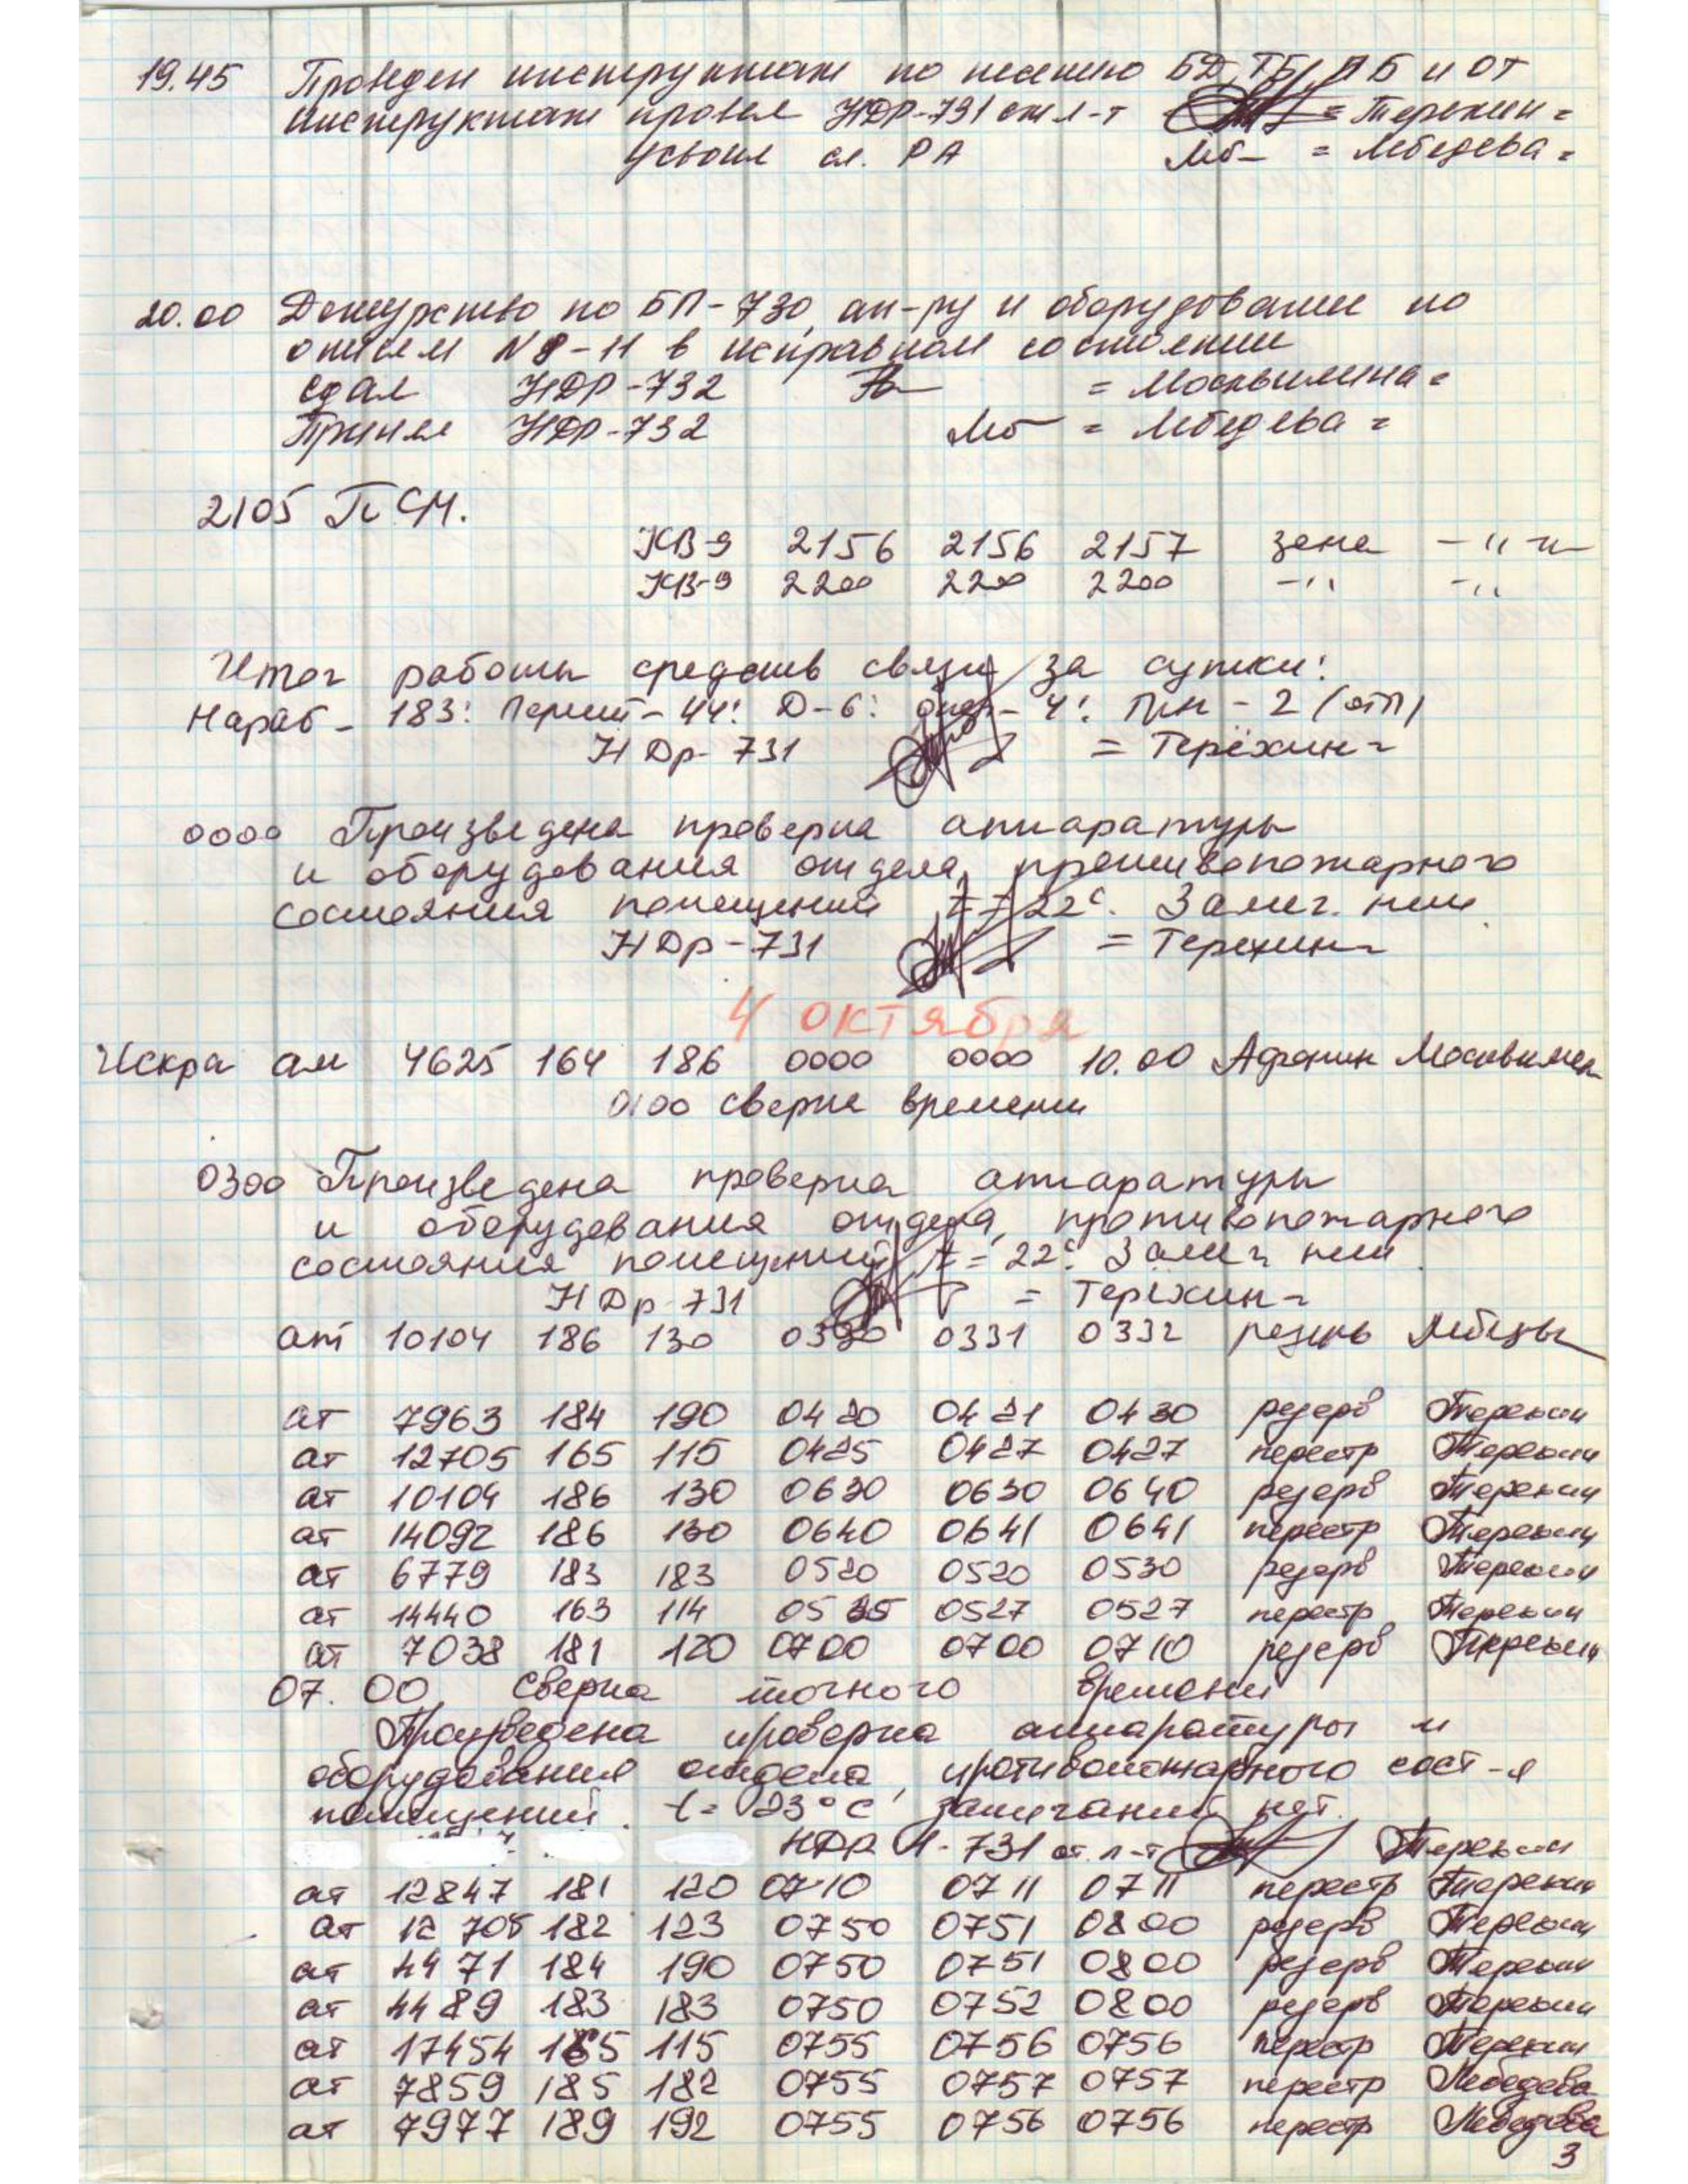 19.45 Проведен инструктаж по несению БД, ТБ, ПБ и ОТ
инструктаж провел НДР-731 ст л-т = Терехин =
усвоил сл. РА = Лебедева =
20.00 Дежурство по БП-730, ап-ру и оборудование по
описям N 8-11 в исправном состоянии
сдал НДР-732 = Москвитина =
Принял НДР-732 = Лебедева =
2105 П СМ.
КВ-9 2156 2156 2157 -"-
КВ-9 2200 2200 2200 -" -"
Итог работы средств связи за сутки:
Нараб - 183: Д-6: - 4:
НДр-731 = Терёхин =
0000 Произведена проверка аппаратуры
и оборудования отдела, противопожарного
состояния помещений t = 22°. Замеч. нет
НДр-731 = Терехин =
4 октября
Искра ам 4625 164 186 0000 0000 10.00 Афонин
0100 сверка времени
0300 Произведена проверка аппаратуры
и оборудования отдела, противопожарного
состояния помещений t = 22° Замеч нет
НДр-731 = Терёхин =
ат 10104 186 130 0330 0331 0332 резерв
ат 7963 184 190 0420 0421 0430 резерв Терехин
ат 12705 165 115 0425 0427 0427 перестр Терехин
ат 10104 186 130 0630 0630 0640 резерв Терехин
ат 14092 186 130 0640 0641 0641 перестр Терехин
ат 6779 183 183 0520 0520 0530 резерв Терехин
ат 14440 163 114 0525 0527 0527 перестр Терехин
ат 7038 181 120 0700 0700 0710 резерв Терехин
07.00 Сверка точного времени
Произведена проверка аппаратуры и
оборудования отдела, противопожарного сост-я
помещений. t = 23°С замечаний нет.
НДР Ч-731 ст. л-т Терехин
ат 12847 181 120 0710 0711 0711 перестр Терехин
ат 12705 182 123 0750 0751 0800 резерв Терехин
ат 4471 184 190 0750 0751 0800 резерв Терехин
ат 4489 183 183 0750 0752 0800 резерв Терехин
ат 17454 165 115 0755 0756 0756 перестр Терехин
ат 7859 185 182 0755 0757 0757 перестр Лебедева
ат 7977 189 192 0755 0756 0756 перестр Лебедева
3